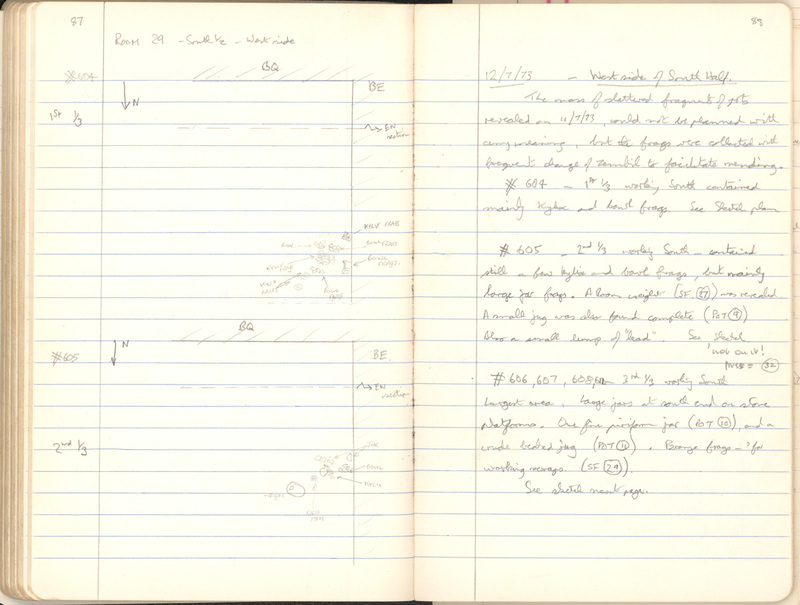 87
Room 29 - South ½ - West side
#604
BQ
BE
N
1st ⅓
EN
section
BQ
N
#605
BE
EN
section
2nd ⅓
88
12/7/73 - West side of South Half.
The mass of shattered fragments of pots
revealed on 11/7/73, could not be planned with
any meaning, but the frags were collected with
frequent change of zembil to facilitate mending.
# 604 - 1st ⅓ working South contained
mainly Kylix and bowl frags. See Sketch plan
# 605 - 2nd ⅓ working South - contained
still a few kylix and bowl frags, but mainly
large jar frags. A loom weight (SF 27) was revealed
A small jug was also found complete (POT 9)
Also a small lump of "lead". See Sketch
'not on it!
32
# 606, 607, 608, 3rd ⅓ working South
Largest area. Large jars at south end on stone
platforms. One fine piriform jar (POT 10), and a
crude beaked jug (POT 11). Bronze frags - ? for
working scraps. (SF 29).
See sketch next page.